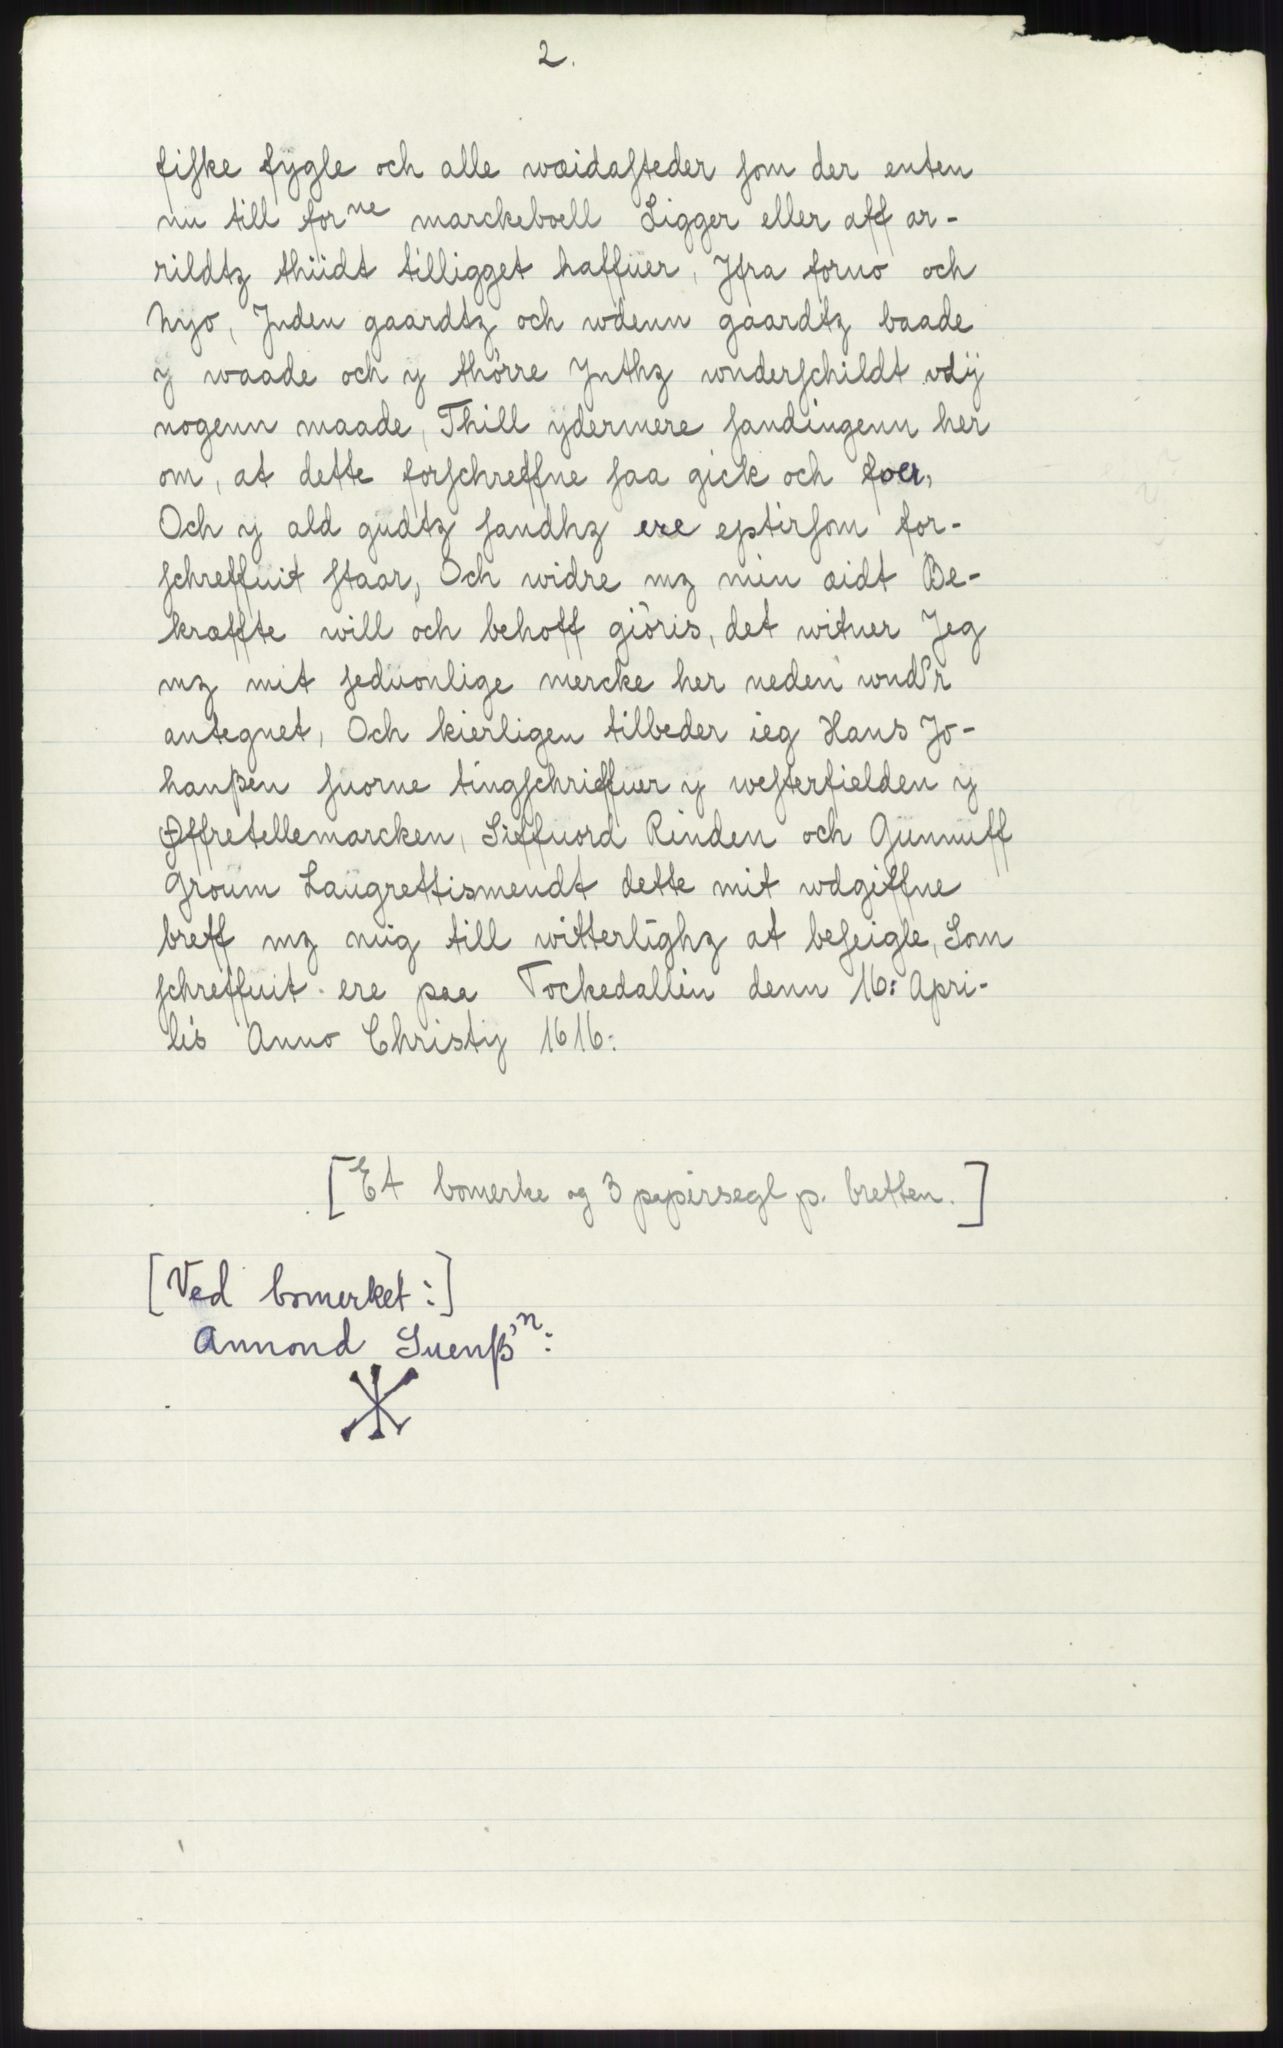 2.
fiſke fÿgle och alle wæidaſteder ſom der enten
nu till forne marckeboell Ligger eller aff ar-
rildtz thüdt tilligget haffuer, Jfra forno och
Nyo, Jnden gaardtz och wdenn gaardtz baade
y waade och y thörre Jnthz wnderſchildt vdÿ
nogenn maade, Thill ÿdermere ſandingenn her
om, at dette forſchreffne ſaa gick och foer,
Och y ald gudtz ſandhz ere eptirſom for-
ſchreffuit ſtaar, Och widre mz min æidt Be-
kræffte will och behoff giöris, det witner Jeg
mz mit ſeduonlige mercke her neden wnd'r
antegnet, Och kierligen tilbeder ieg Hans Jo-
hanßen ſuorne tingſchriffuer y weſterfielden y
Øffretellemarcken, Siffuord Rinden och Gunnuff
Groum Laugrettismendt dette mit wdgiffne
breff mz mig till witterlighz at beſeigle, Som
ſchreffuit ere paa Tockedallen denn 16: Apri-
lis Anno Christy 1616:
[Et bomerke og 3 papirsegl p. bretten.]
[Ved bomerket:]
Annond Suenß'n: